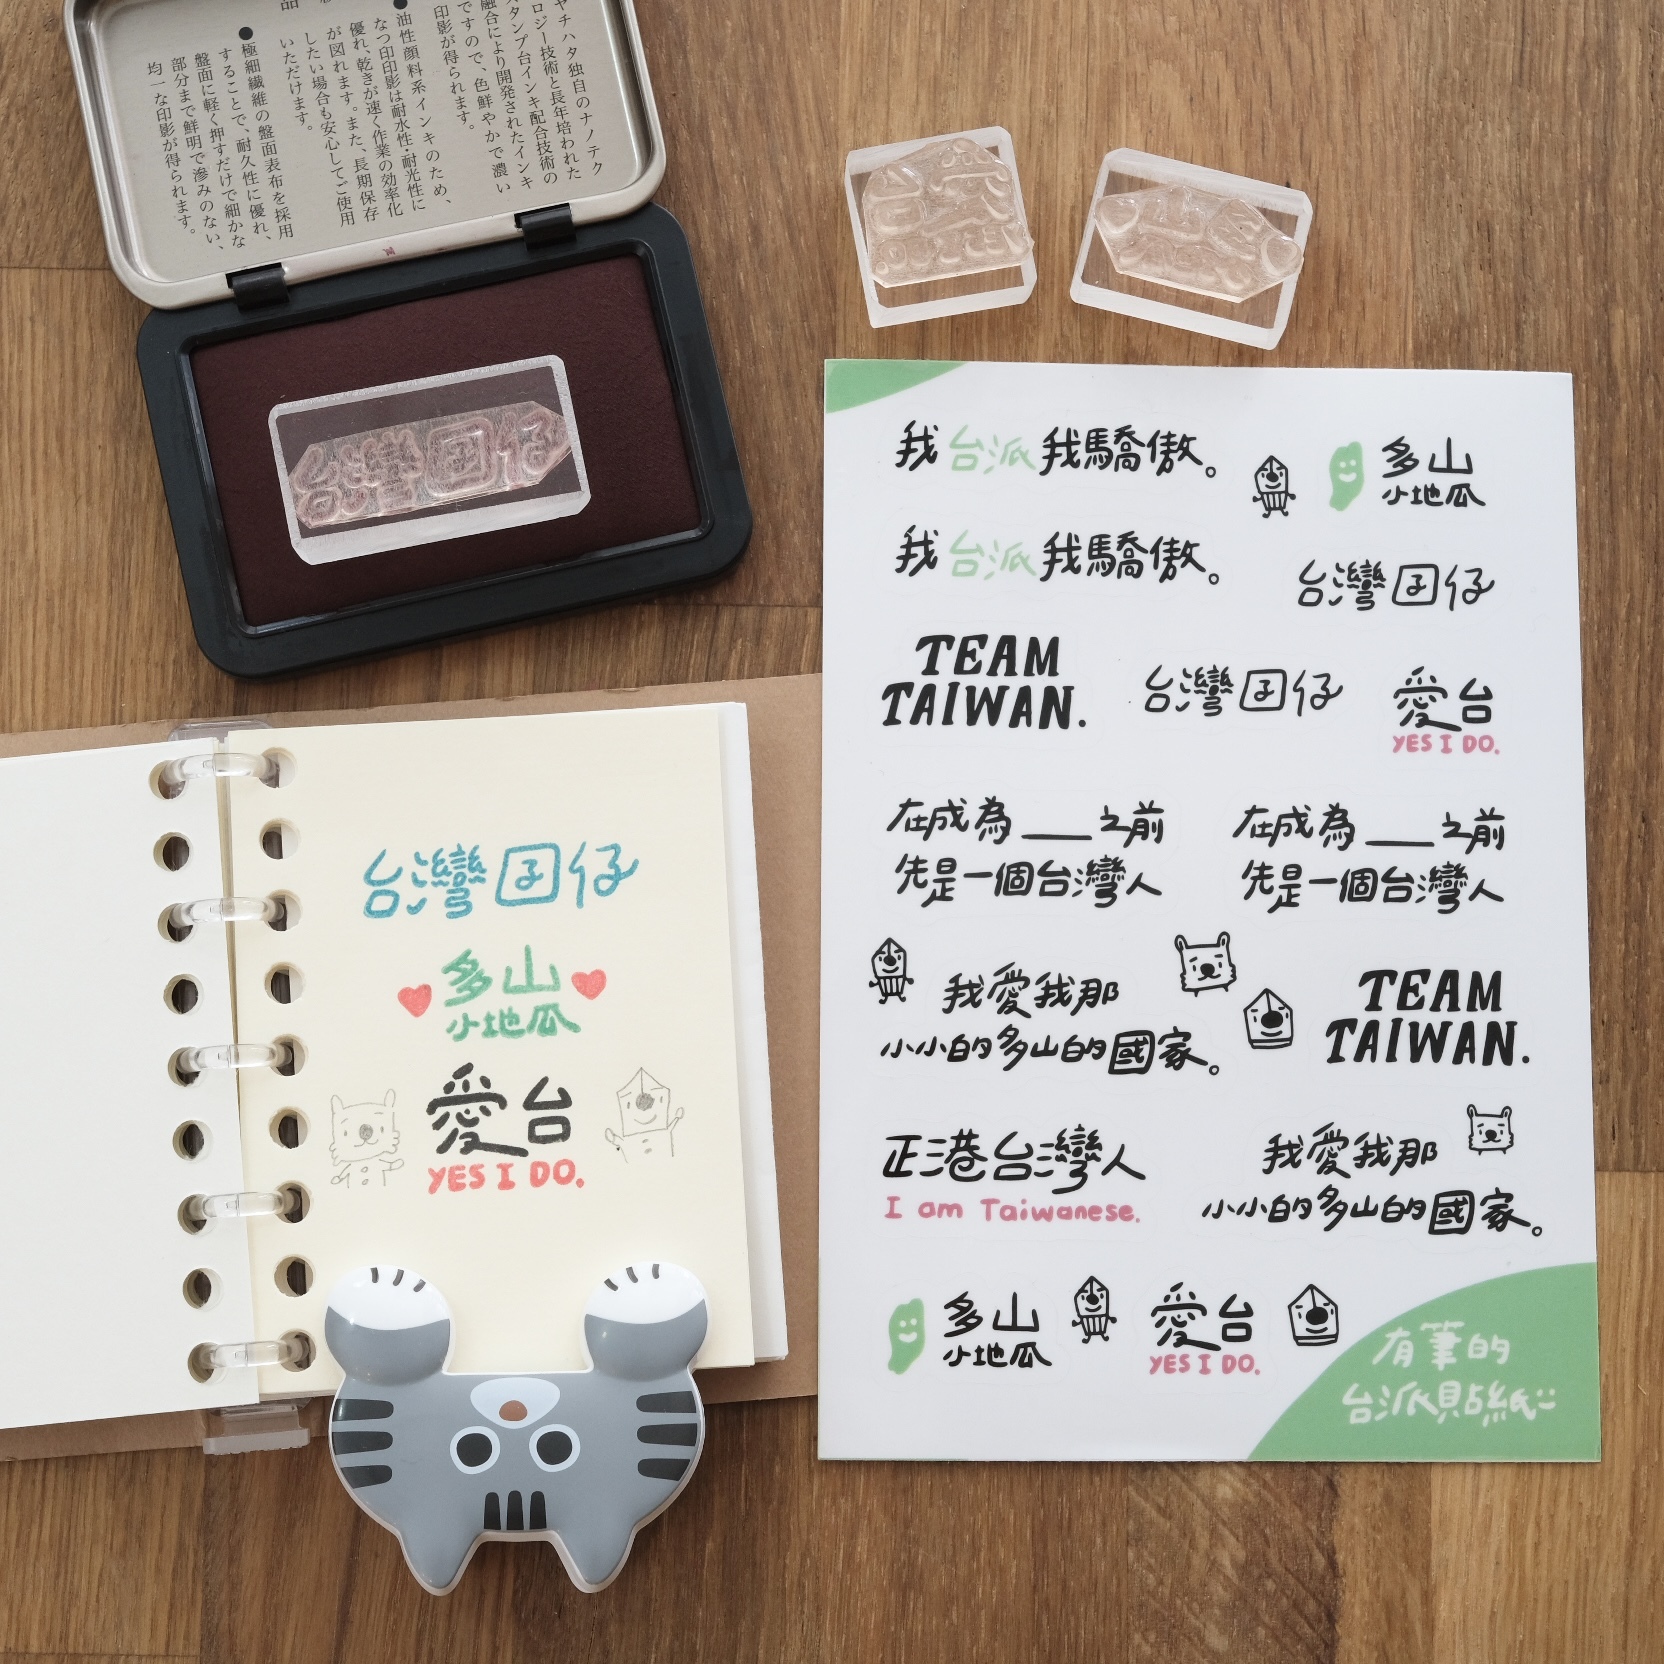 ヤチハタ独自のナノテク
ロジー技術と長年培われた
スタンプ台インキ配合技術の
融合により開発されたインキ
ですので、色鮮やかで濃い
印影が得られます。
●油性顔料系インキのため、
なつ印印影は耐水性・耐光性に
優れ、乾きが速く作業の効率化
が図れます。また、長期保存
したい場合も安心してご使用
いただけます。
●極細繊維の盤面表布を採用
することで、耐久性に優れ、
盤面に軽く押すだけで細かな
部分まで鮮明で滲みのない、
均一な印影が得られます。
台灣囝仔
台灣囝仔
多山
小地瓜
愛台
YES I DO.
我台派我驕傲。
多山
小地瓜
我台派我驕傲。
台灣囝仔
TEAM
TAIWAN.
台灣囝仔
愛台
YES I DO.
在成為___之前
先是一個台灣人
在成為___之前
先是一個台灣人
我愛我那
小小的多山的國家。
TEAM
TAIWAN.
正港台灣人
I am Taiwanese.
我愛我那
小小的多山的國家。
多山
小地瓜
愛台
YES I DO.
有筆的
台派貼紙